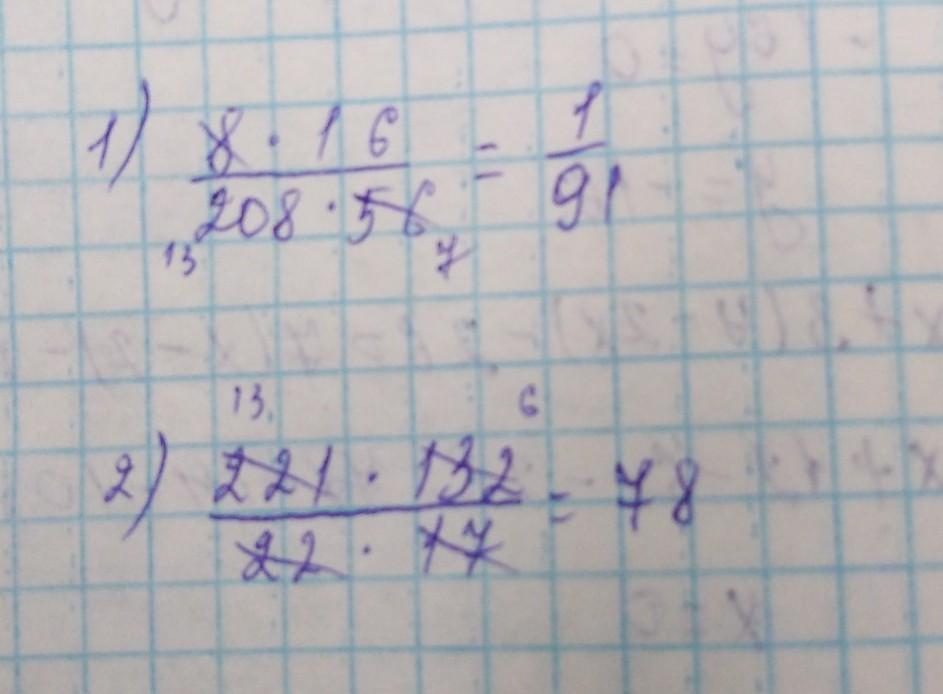 1) 8 · 16 = 1
208 · 56 91
13 7
13 6
2) 221 · 132 = 78
22 · 17